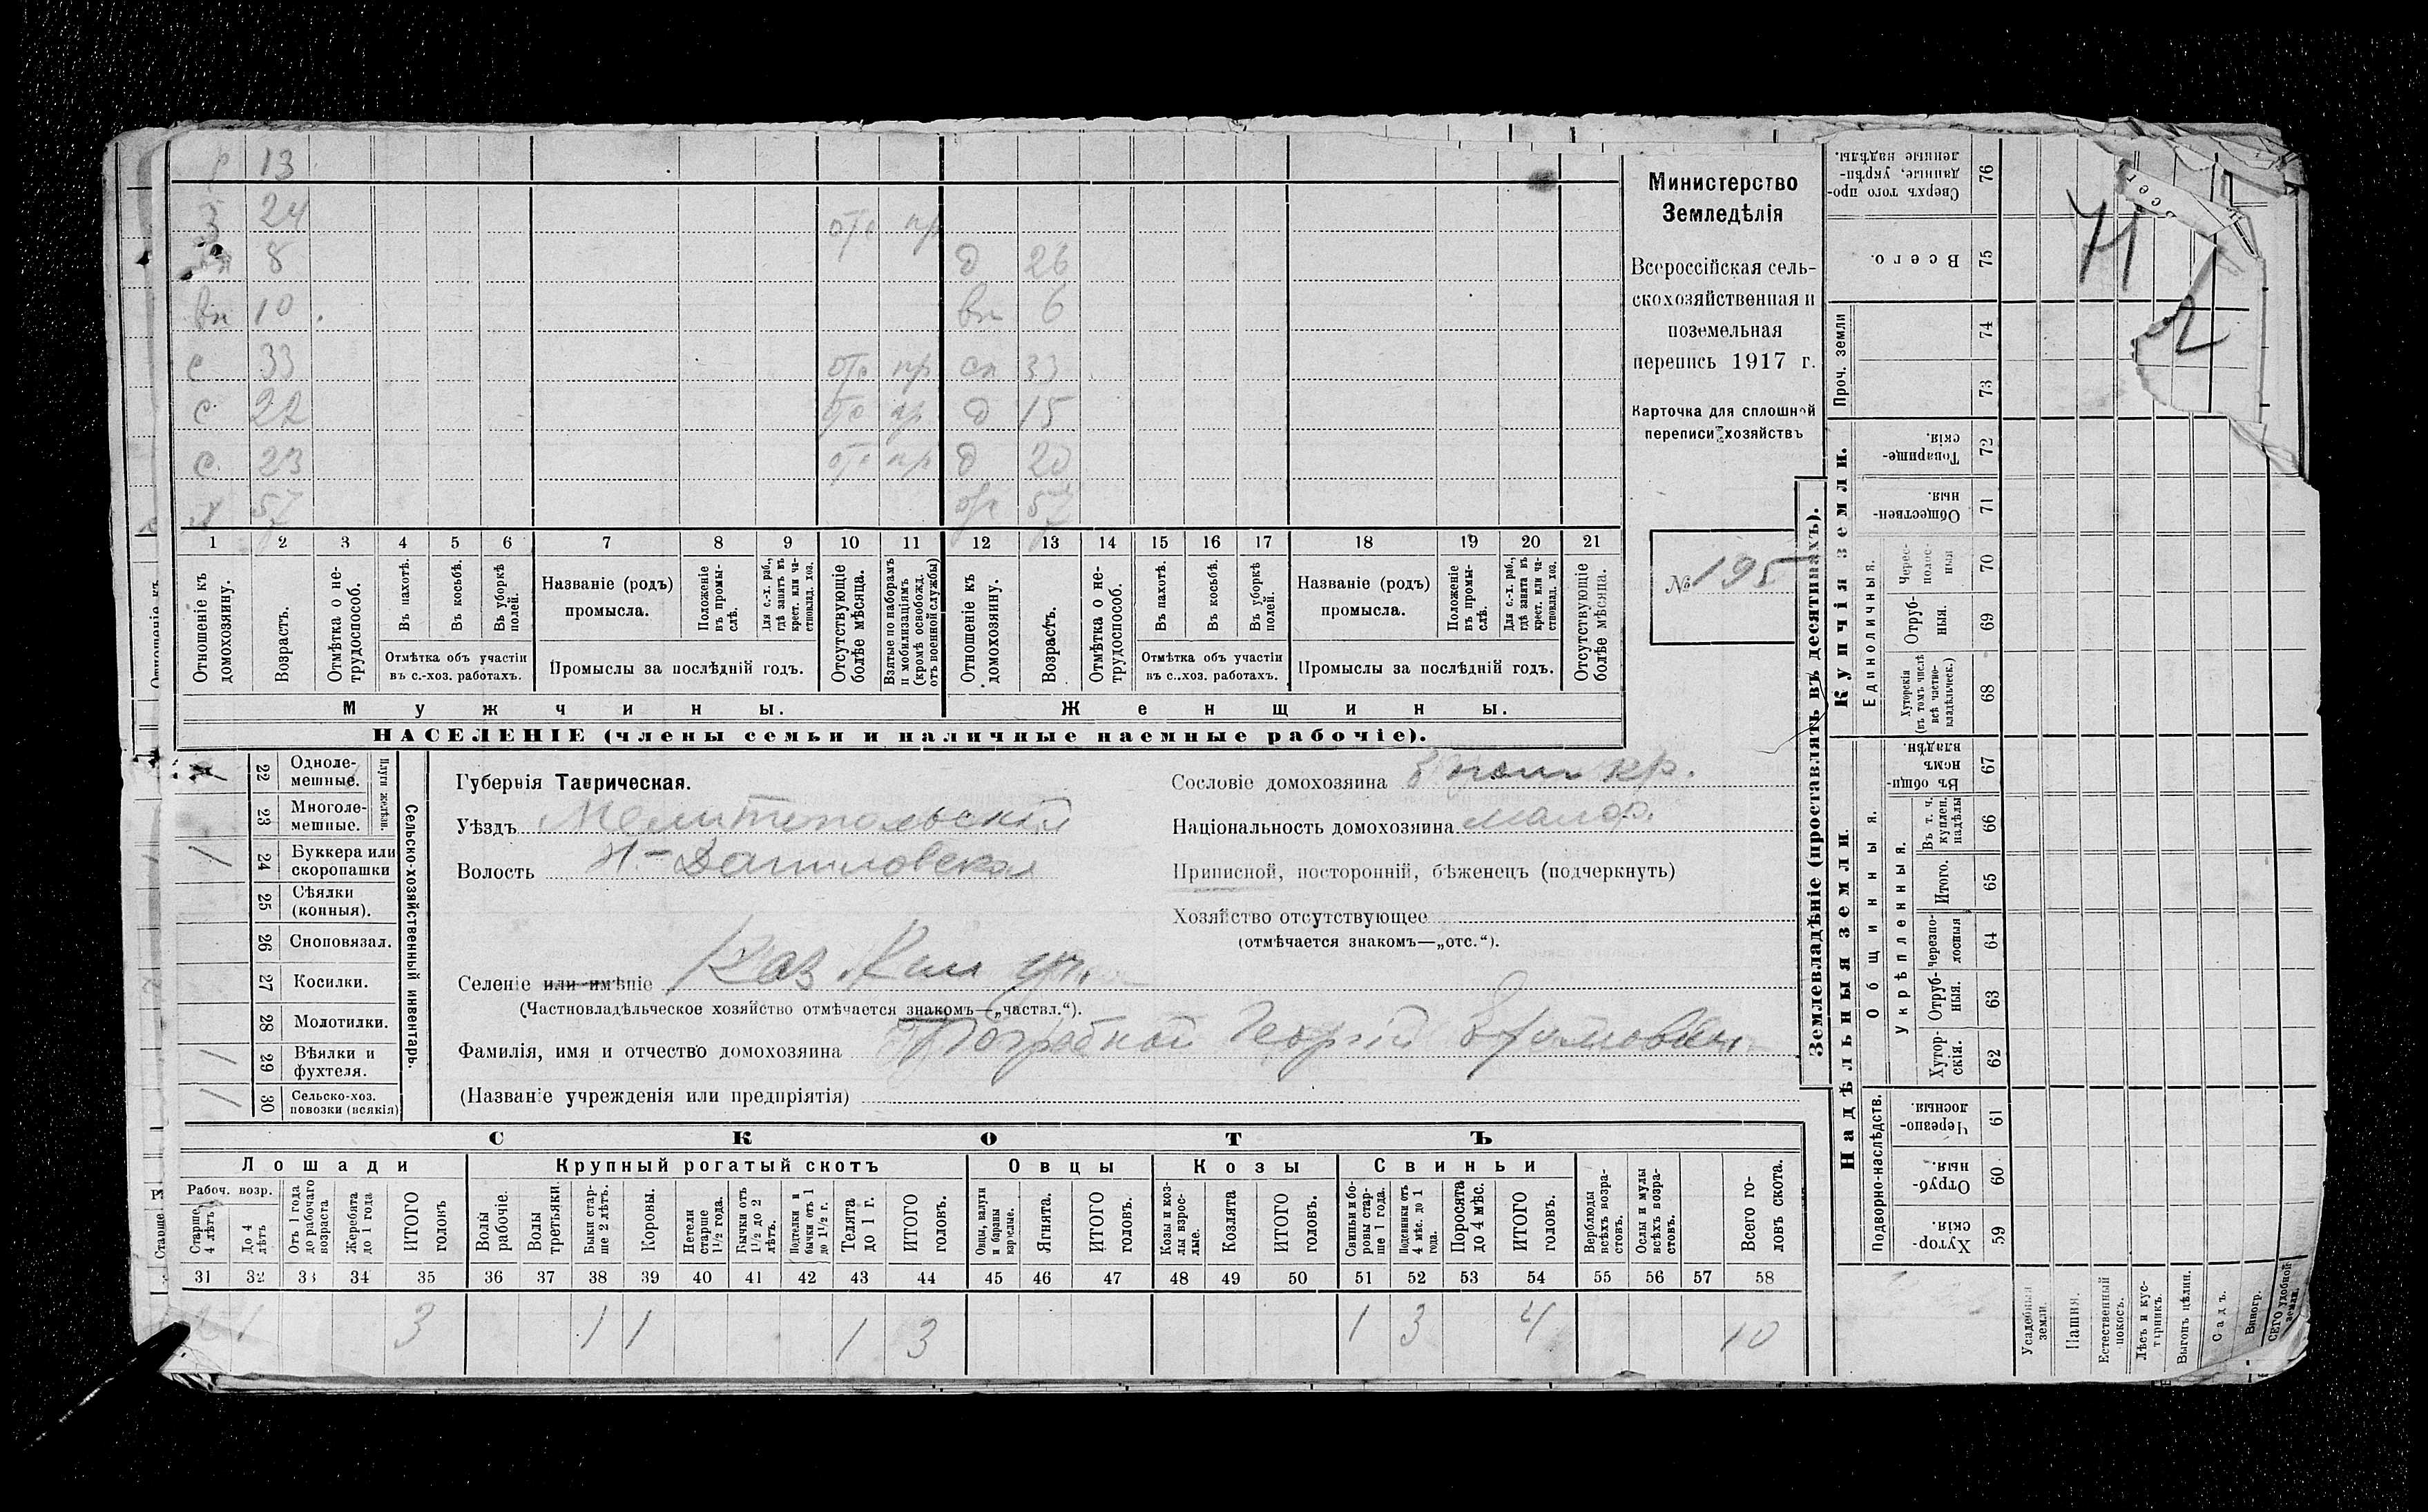 с 13
3 24 отс пр
8 д 26
вн 10 вн 6
с 33 отс пр сн 33
с 22 отс пр д 15
с. 23 отс пр д 20
х 57 57
1 2 3 4 5 6 7 8 9 10 11 12 13 14 15 16 17 18 19 20 21
Отношеніе къ домохозяину.
Возрастъ.
Отмѣтка о не-
трудоспособ.
Въ пахотѣ.
Въ косьбѣ.
Въ уборкѣ
полей.
Отмѣтка объ участіи
въ с.-хоз. работахъ.
Названіе (родъ)
промысла.
Положеніе
въ промы-
слѣ.
Для с.-х. раб.,
гдѣ занятъ въ
крест. или ча-
стновлад. хоз.
Промыслы за послѣдній годъ.
Отсутствующіе
болѣе мѣсяца.
Взятые по наборамъ
и мобилизаціямъ
(кромѣ освобожд.
отъ военной службы)
Отношеніе къ
домохозяину.
Возрастъ.
Отмѣтка о не-
трудоспособ.
Въ пахотѣ.
Въ косьбѣ.
Въ уборкѣ
полей.
Отмѣтка объ участіи
въ с..хоз. работахъ.
Названіе (родъ)
промысла.
Положеніе
въ промы-
слѣ.
Для с.-х. раб.,
гдѣ занята въ
крест. или ча-
стновлад. хоз.
Промыслы за послѣдній годъ.
Отсутствующіе
болѣе мѣсяца.
Мужчины.
Женщины.
НАСЕЛЕНІЕ (члены семьи и наличные наемные рабочіе).
Министерство
Земледѣлія
Всероссійская сель-
скохозяйственная и
поземельная
перепись 1917 г.
Карточка для сплошной
переписи хозяйствъ
№ 195
22 Одноле-
мешные.
23 Многоле-
мешные.
Плуги желѣзн.
24 Буккера или
скоропашки
1
25 Сѣялки
(конныя).
26 Сноповязал.
27 Косилки.
28 Молотилки.
29 Вѣялки и
фухтеля.
1
30 Сельско-хоз.
повозки (всякія)
1
Сельско-хозяйственный инвентарь.
Губернія Таврическая.
Уѣздъ Мелитопольскій
Волость Н-Даниловская
Селеніе или имѣніе Каз. Кам уч.
(Частновладѣльческое хозяйство отмѣчается знакомъ—„частвл.“).
Фамилія, имя и отчество домохозяина Погребной Георгій Ефимовичъ
(Названіе учрежденія или предпріятія)
Сословіе домохозяина кр.
Національность домохозяина малор.
Приписной, посторонній, бѣженецъ (подчеркнуть)
Хозяйство отсутствующее
(отмѣчается знакомъ—„отс.“).
СКОТЪ
Лошади Крупный рогатый скотъ Овцы Козы Свиньи
Рабоч. возр.
Старше
4 лѣтъ
До 4
лѣтъ
Отъ 1 года
до рабочаго
возраста
Жеребята
до 1 года
ИТОГО
головъ
Волы
рабочіе.
Волы
третьяки.
Быки стар-
ше 2 лѣтъ.
Коровы.
Нетели
старше
1½ года.
Бычки отъ
1½ до 2
лѣтъ.
Подтелки и
бычки отъ 1
до 1½ г.
Телята
до 1 г.
ИТОГО
головъ.
Овцы, валухи
и бараны
взрослые.
Ягнята.
ИТОГО
головъ.
Козы и коз-
лы взрос-
лые.
Козлята
ИТОГО
головъ.
Свиньи и бо-
ровы стар-
ше 1 года.
Подсвинки отъ
4 мѣс. до 1
года.
Поросята
до 4 мѣс.
ИТОГО
головъ.
Верблюды
всѣхъ возра-
стовъ.
Ослы и мулы
всѣхъ возра-
стовъ.
Всего го-
ловъ скота.
31 32 33 34 35 36 37 38 39 40 41 42 43 44 45 46 47 48 49 50 51 52 53 54 55 56 57 58
2 1 3 1 1 1 3 1 3 4 10
Землевладѣніе (проставлять въ десятинахъ).
Купчія земли.
Надѣльныя земли.
Сверхъ того про-
данные, укрѣп-
ленные надѣлы. 76
Всего. 75
Проч. земли
74
73
Товарище-
скія. 72
Обществен-
ныя. 71
Единоличныя.
Черес-
полос-
ныя 70
Отруб-
ныя. 69
Хуторскія
(въ томъ числѣ
всѣ частно-
владѣльческ.) 68
Общинныя.
Въ общи-
номъ
владѣн. 67
Укрѣпленныя.
Въ т. ч.
куплен.
надѣлы 66
Итого. 65
Черезпо-
лосныя 64
Отруб-
ныя. 63
Хутор-
скія. 62
Подворно-наслѣдств.
Черезпо-
лосныя. 61
Отруб-
ныя. 60
Хутор-
скія. 59
Усадебныя
земли.
Пашня.
Естественный
покосъ.
Лѣсъ и кус-
тарникъ.
Выгонъ цѣлин.
Садъ.
Виногр.
2